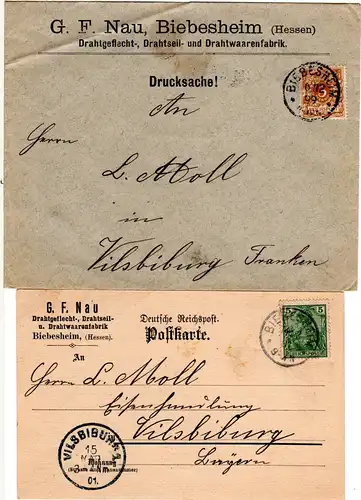 G. F. Nau, Biebesheim (Hessen)
Drahtgeflecht-, Drahtseil- und Drahtwaarenfabrik.
Drucksache!
BIEBESHEIM
99
3
An
Herrn L. Moll
in
Vilsbiburg Franken
G. F. Nau
Drahtgeflecht-, Drahtseil-
u. Drahtwaarenfabrik
Biebesheim, (Hessen).
Deutsche Reichspost.
Postkarte.
5 5
An
Herrn L. Moll
Eisenhandlung
Vilsbiburg
Bayern
VILSBIBURG
15
01.
Wohnung